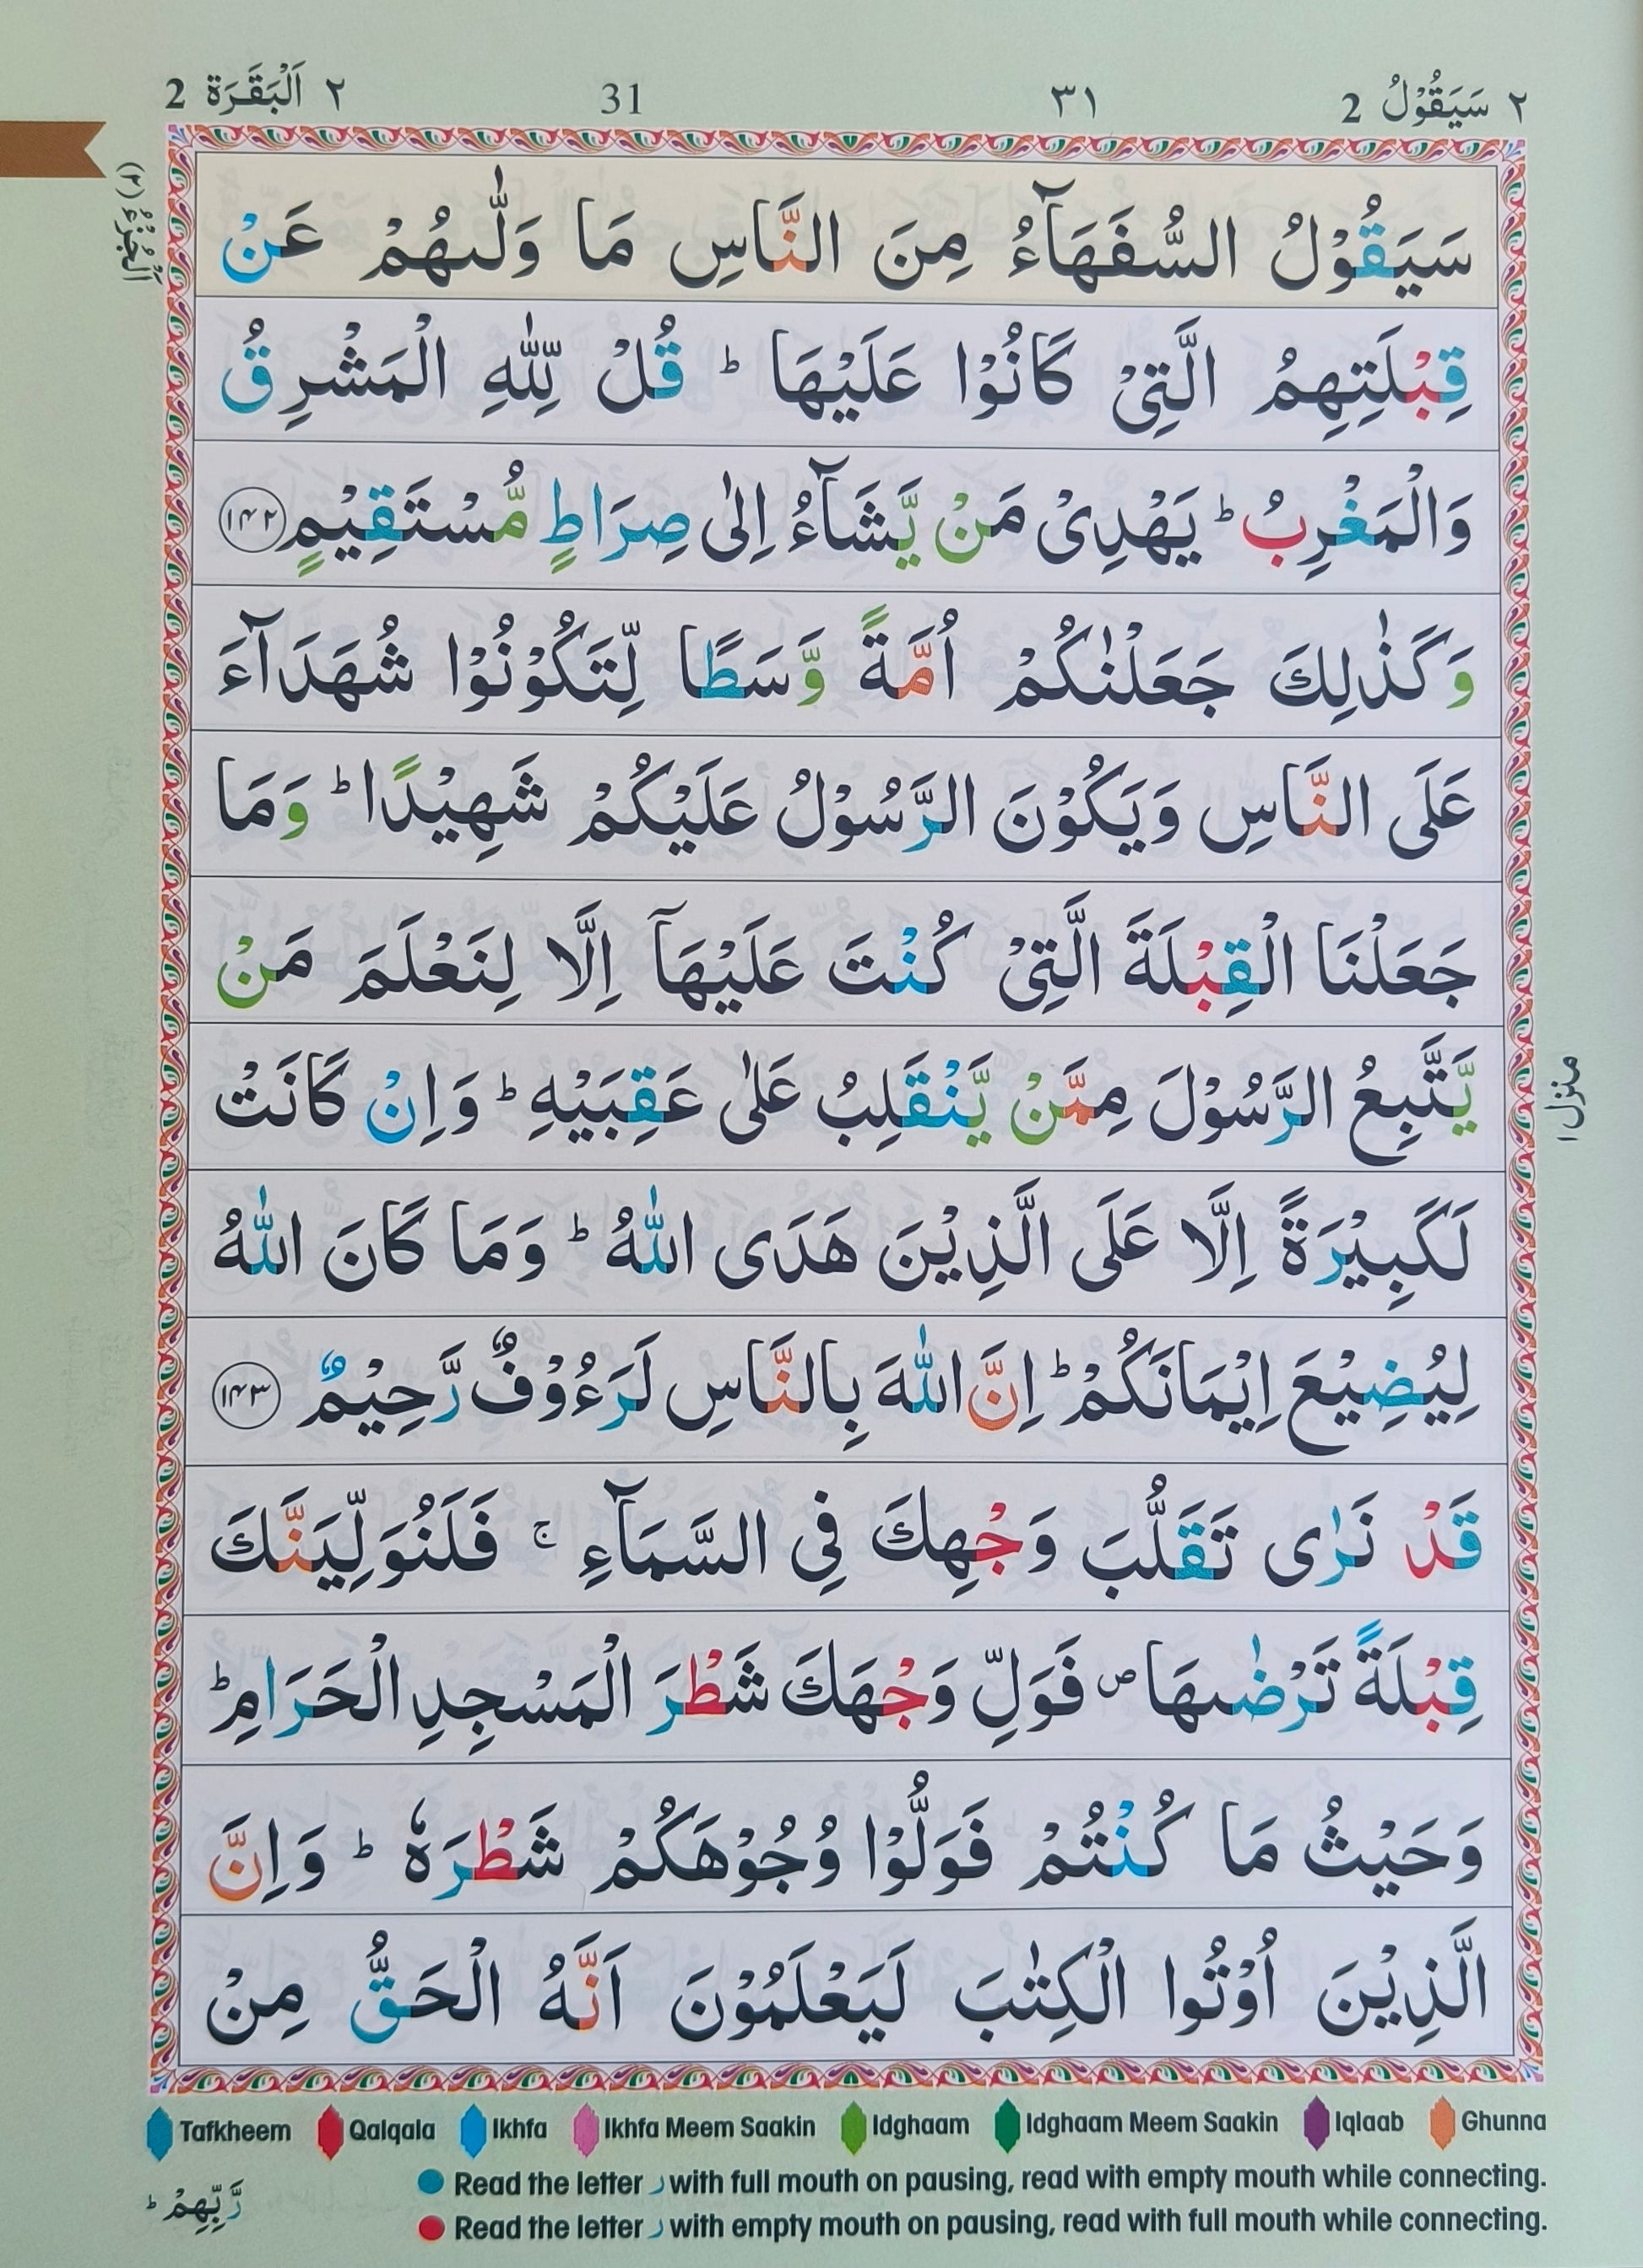 ٢ سَيَقُوْلُ 2
٣١
31
٢ اَلْبَقَرَة 2
اَلْجُزْءُ (٢)
سَيَقُوْلُ السُّفَهَآءُ مِنَ النَّاسِ مَا وَلّٰىهُمْ عَنْ
قِبْلَتِهِمُ الَّتِىْ كَانُوْا عَلَيْهَا ؕ قُلْ لِّلّٰهِ الْمَشْرِقُ
وَالْمَغْرِبُ ؕ يَهْدِىْ مَنْ يَّشَآءُ اِلٰى صِرَاطٍ مُّسْتَقِيْمٍ ﴿۱۴۲﴾
وَكَذٰلِكَ جَعَلْنٰكُمْ اُمَّةً وَّسَطًا لِّتَكُوْنُوْا شُهَدَآءَ
عَلَى النَّاسِ وَيَكُوْنَ الرَّسُوْلُ عَلَيْكُمْ شَهِيْدًا ؕ وَمَا
جَعَلْنَا الْقِبْلَةَ الَّتِىْ كُنْتَ عَلَيْهَآ اِلَّا لِنَعْلَمَ مَنْ
يَّتَّبِعُ الرَّسُوْلَ مِمَّنْ يَّنْقَلِبُ عَلٰى عَقِبَيْهِ ؕ وَاِنْ كَانَتْ
لَكَبِيْرَةً اِلَّا عَلَى الَّذِيْنَ هَدَى اللّٰهُ ؕ وَمَا كَانَ اللّٰهُ
لِيُضِيْعَ اِيْمَانَكُمْ ؕ اِنَّ اللّٰهَ بِالنَّاسِ لَرَءُوْفٌ رَّحِيْمٌ ﴿۱۴۳﴾
قَدْ نَرٰى تَقَلُّبَ وَجْهِكَ فِى السَّمَآءِ ۚ فَلَنُوَلِّيَنَّكَ
قِبْلَةً تَرْضٰىهَا ۖ فَوَلِّ وَجْهَكَ شَطْرَ الْمَسْجِدِ الْحَرَامِ ؕ
وَحَيْثُ مَا كُنْتُمْ فَوَلُّوْا وُجُوْهَكُمْ شَطْرَهٗ ؕ وَاِنَّ
الَّذِيْنَ اُوْتُوا الْكِتٰبَ لَيَعْلَمُوْنَ اَنَّهُ الْحَقُّ مِنْ
منزل ۱
Tafkheem Qalqala Ikhfa Ikhfa Meem Saakin Idghaam Idghaam Meem Saakin Iqlaab Ghunna
Read the letter ر with full mouth on pausing, read with empty mouth while connecting.
Read the letter ر with empty mouth on pausing, read with full mouth while connecting.
رَّبِّهِمْ ؕ